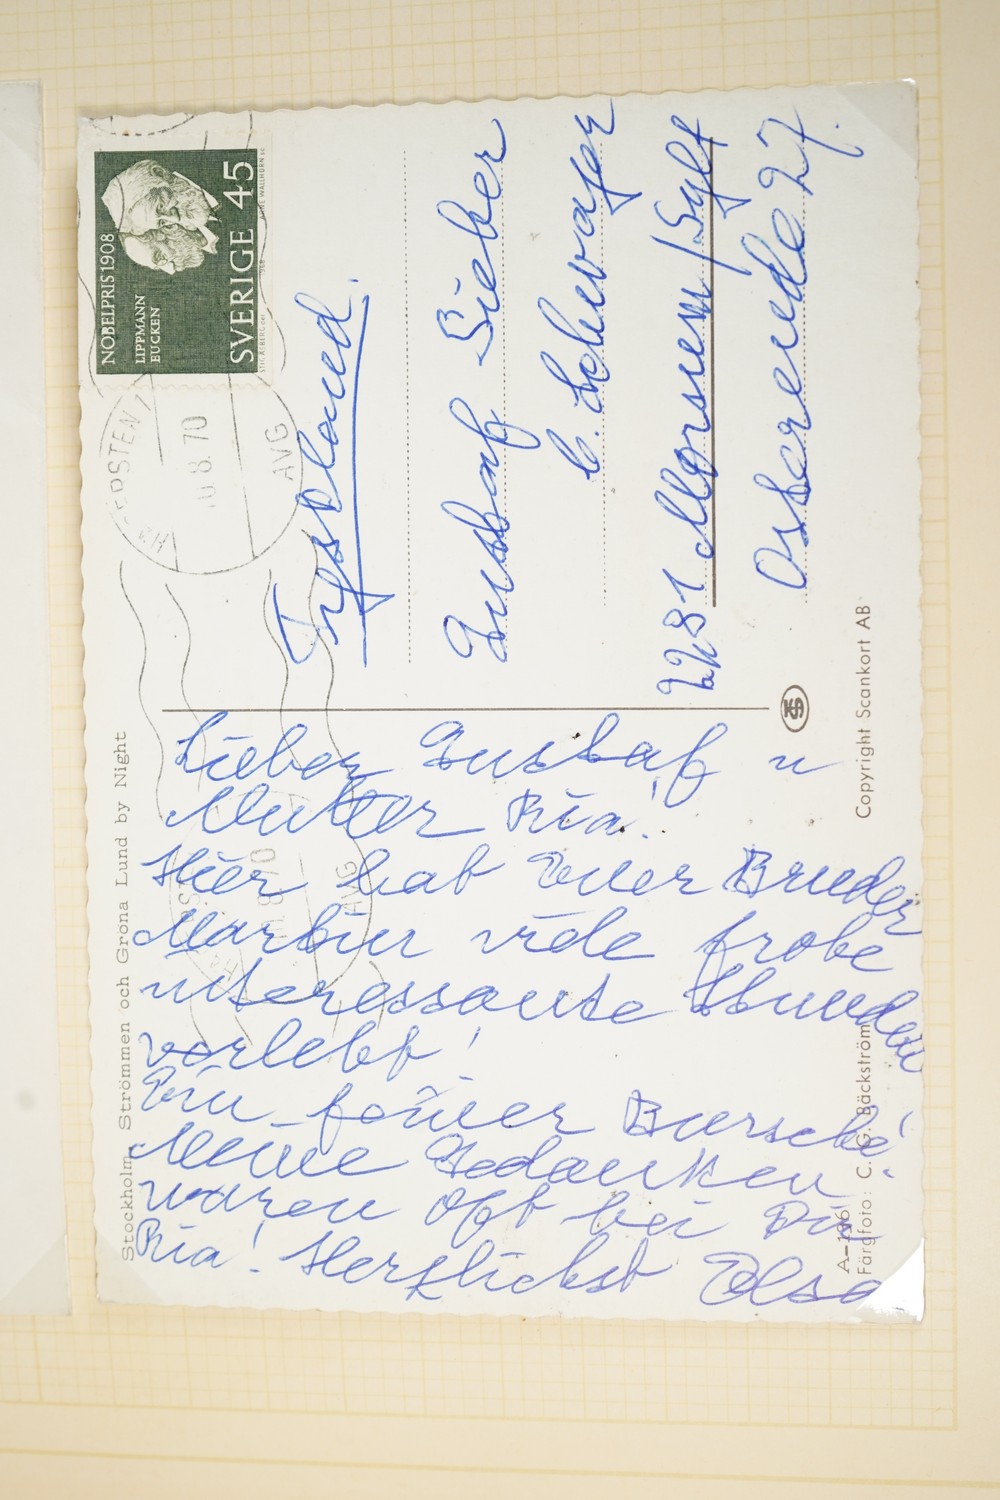 Stockholm. Strömmen och Gröna Lund by Night
Lieber Gustaf u
Mutter Ria!
Hier hat Euer Bruder
Martin viele frohe
interessante Stunden
verlebt!
Ein feiner Bursche!
Meine Gedanken
waren oft bei Dir
Ria! Herzlichst Elsa
NOBELPRIS 1908
LIPPMANN
EUCKEN
SVERIGE 45
HÄGERSTEN 1
10.8.70
AVG
Tyskland!
Gustaf Sieber
b. Schwager
2281 Morsum/Sylt
Osterende 27.
Copyright Scankort AB
Färgfoto: C. G. Bäckström